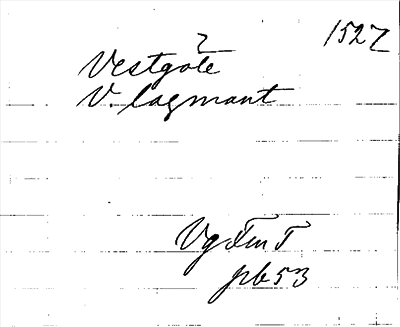 1527
?
Vestgöte
V. lagmant
Vg Fm T
pb 53